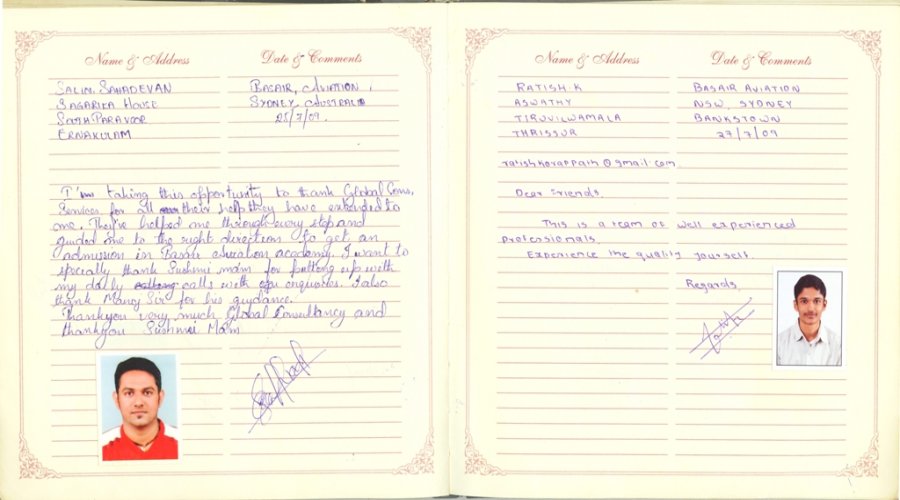 Name & Address
Date & Comments
SALIM SAHADEVAN
SAGARIKA HOUSE
SOUTH PARAVOOR
ERNAKULAM
BASAIR, AVIATION,
SYDNEY, AUSTRALIA
25/7/09.
I'm taking this opportunity to thank Global Cons.
Services for all their help they have extended to
me. They've helped me through every step and
guided me to the right direction to get an
admission in Basair aviation academy. I want to
specially thank Sushmi ma'm for putting up with
my daily calls with enquiries. I also
thank Manoj Sir for his guydance.
Thankyou very much Global Consultancy and
thankyou Sushmi Ma'm
Name & Address
Date & Comments
RATISH.K
ASWATHY
TIRUVILWAMALA
THRISSUR
BASAIR AVIATION
NSW, SYDNEY
BANKSTOWN
27/7/09
ratishkorappath@gmail.com
Dear Friends,
This is a team of well experienced
professionals.
Experience the quality yourself.
Regards